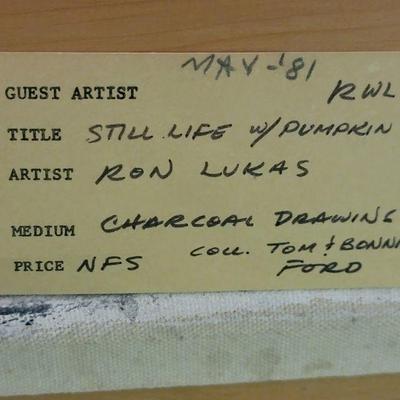 MAY-'81
GUEST ARTIST RWL
TITLE STILL LIFE W/PUMPKIN
ARTIST RON LUKAS
MEDIUM CHARCOAL DRAWING
PRICE NFS COLL. TOM & BONNI
FORD